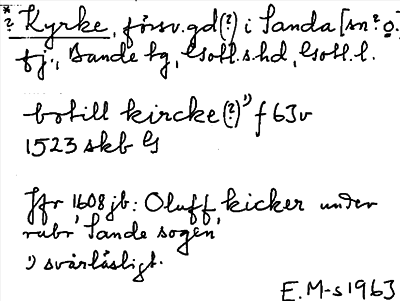 *? Kyrke, försv. gd (?) i Sanda [sn? o.
fj., Bande hg, Gotl. s. hd, Gotl. l.
botill kircke (?) ¹) f 63v
1523 skb G
Jfr 1608 jb: Oluff kicker under
rubr Sande sogen
¹) svårläsligt.
E. M-s 1963